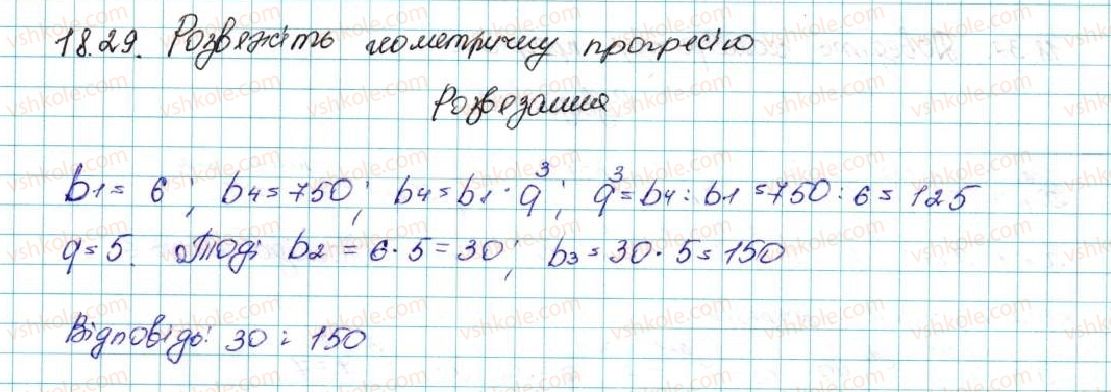 18.29. Розвяжіть геометричну прогресію
Розвязання
b1 = 6; b4 = 750; b4 = b1 · q³; q³ = b4 : b1 = 750 : 6 = 125
q = 5. Тоді b2 = 6 · 5 = 30; b3 = 30 · 5 = 150
Відповідь: 30 ; 150